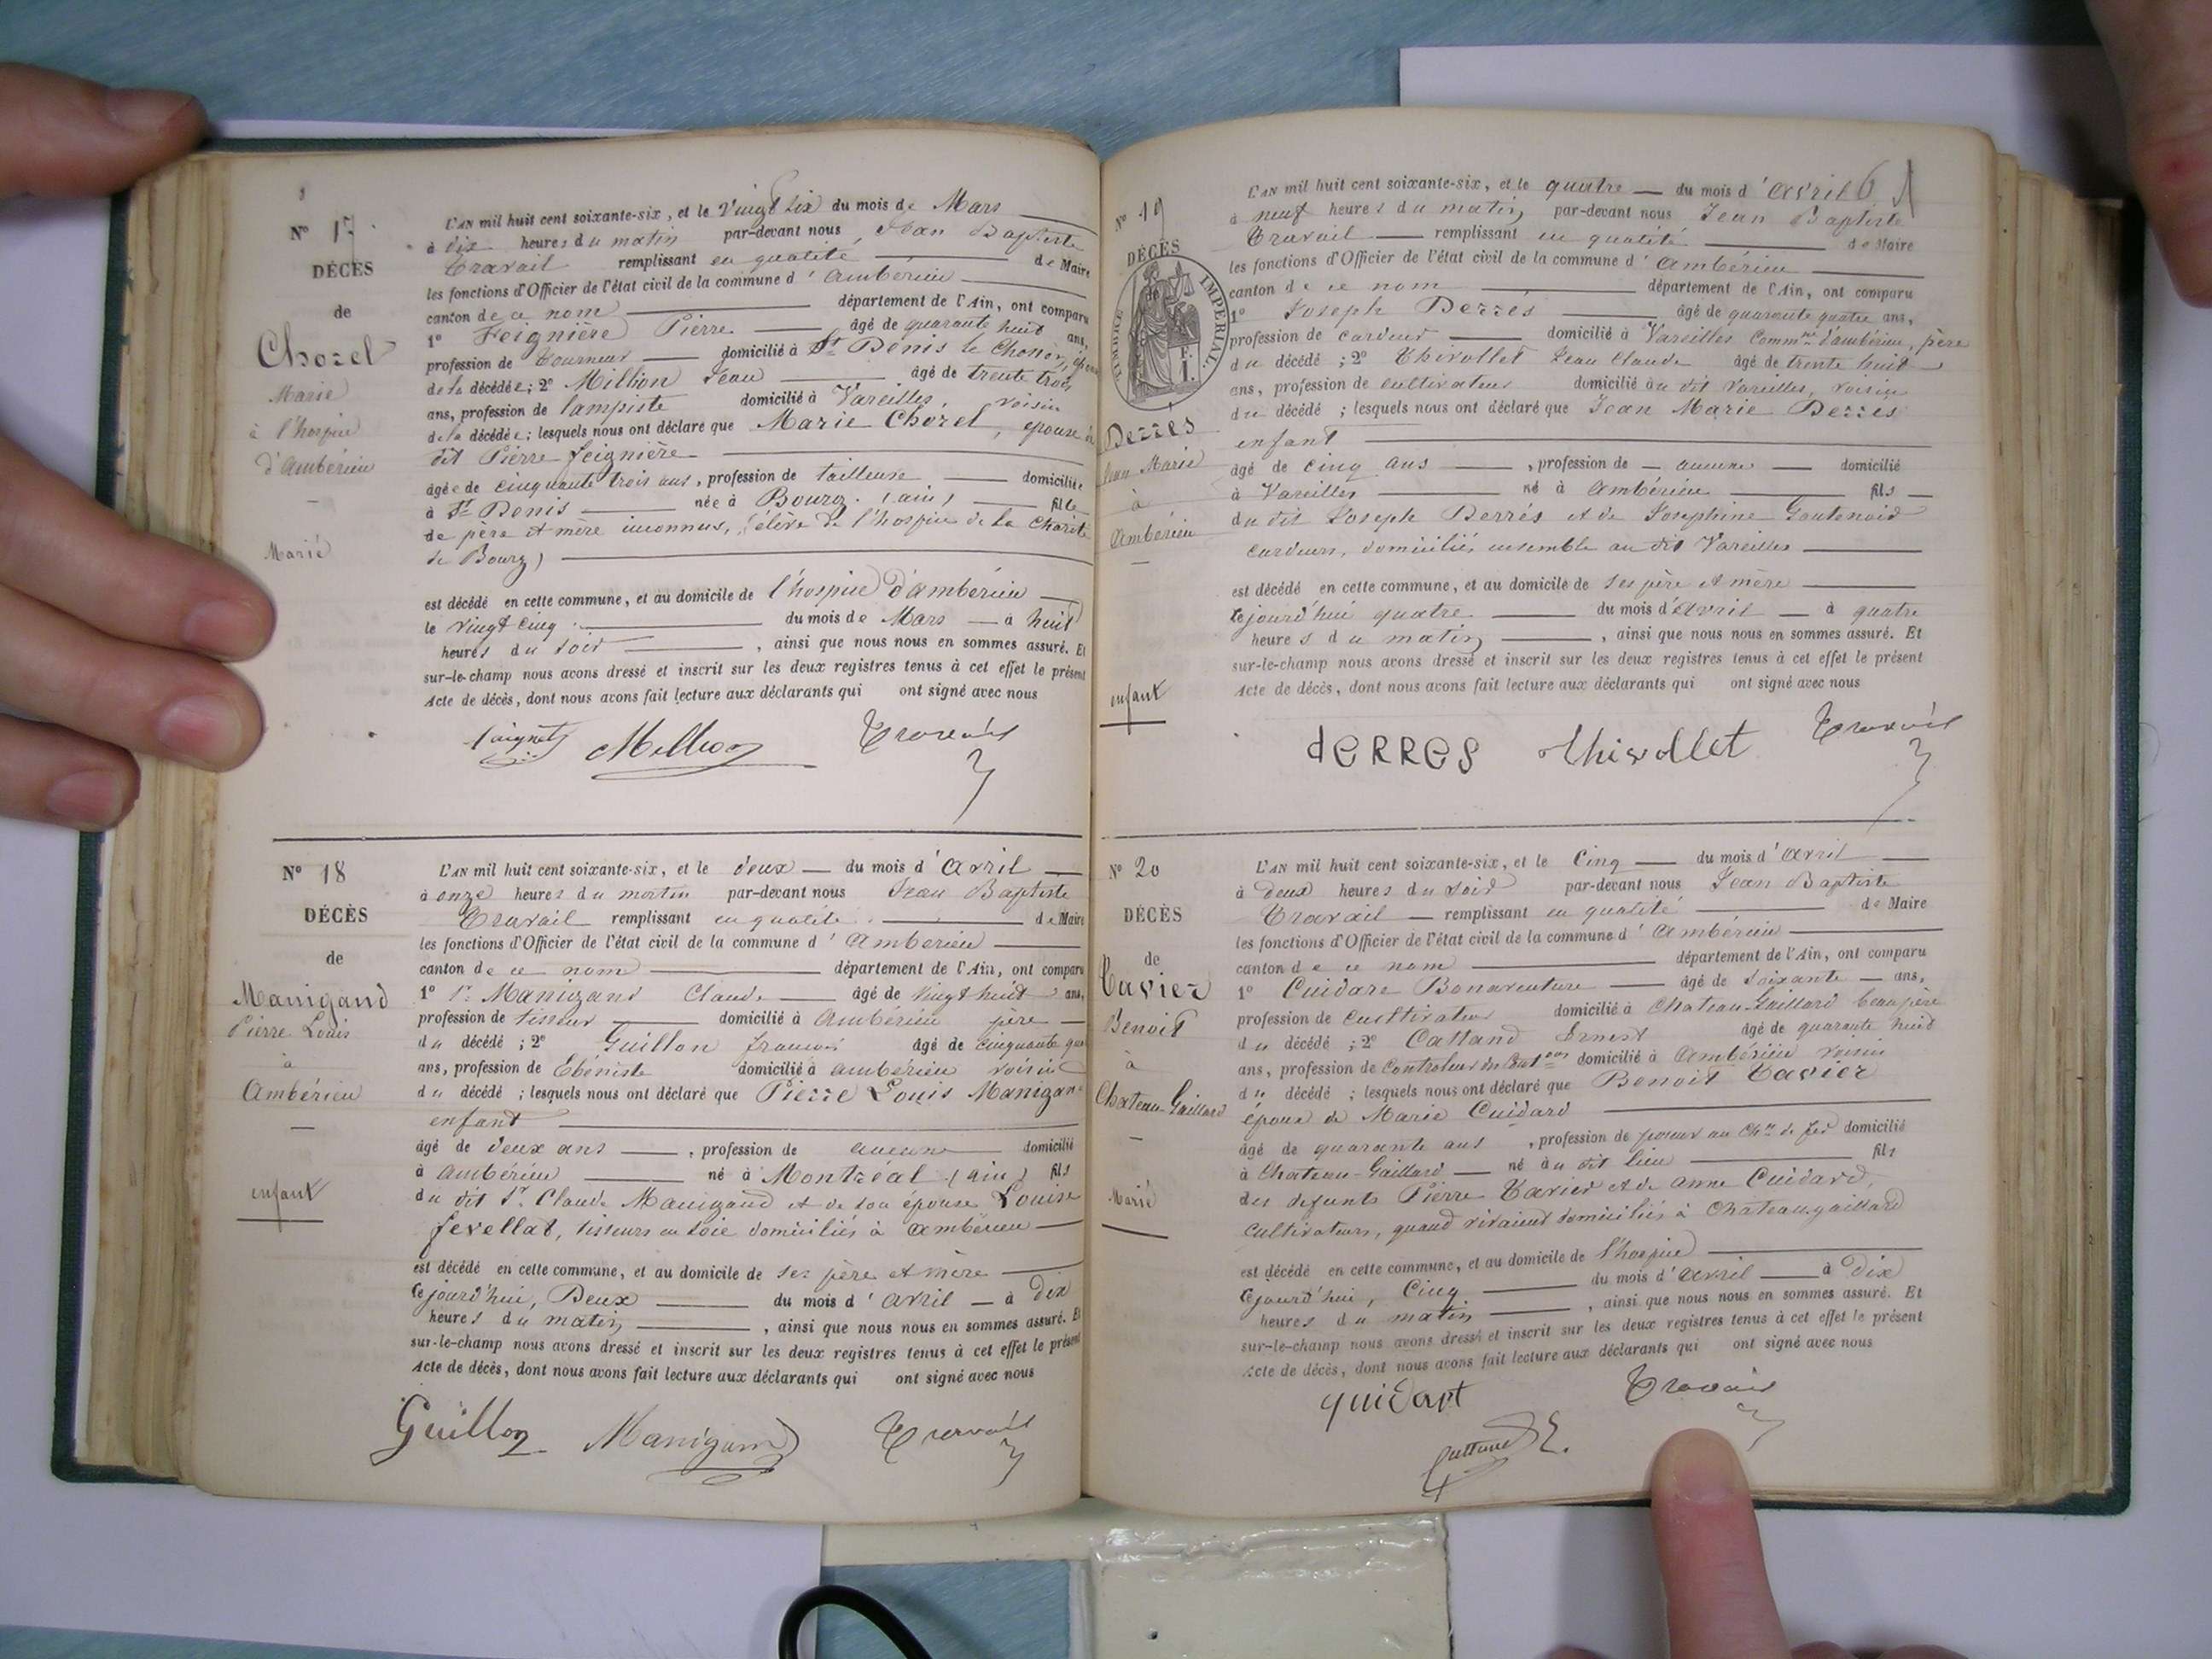 N° 17
DÉCÈS
de
Chorel
Marie
à l'hospice
d'Ambérieu
Marié
L'AN mil huit cent soixante-six, et le Vingt six du mois de Mars
à dix heures du matin par-devant nous Jean Baptiste
Travail remplissant en qualité de Maire
les fonctions d'Officier de l'état civil de la commune d'Ambérieu
canton de ce nom département de l'Ain, ont comparu
1° Feignière Pierre âgé de quarante huit ans,
profession de Tourneur domicilié à St Denis le Chosson, époux
de la décédée; 2° Million Jean âgé de trente trois
ans, profession de lampiste domicilié à Vareilles, voisin
de la décédée; lesquels nous ont déclaré que Marie Chorel, épouse du
dit Pierre Feignière
âgée de cinquante trois ans, profession de tailleuse domiciliée
à St Denis née à Bourg (ain) fille
de père et mère inconnus, (élève de l'hospice de la Charité
de Bourg)
est décédé en cette commune, et au domicile de l'hospice d'ambérieu
le vingt cinq du mois de Mars à huit
heures du soir, ainsi que nous nous en sommes assuré. Et
sur-le-champ nous avons dressé et inscrit sur les deux registres tenus à cet effet le présent
Acte de décès, dont nous avons fait lecture aux déclarants qui ont signé avec nous
Million Travail
N° 18
DÉCÈS
de
Manigand
Pierre Louis
à
Ambérieu
enfant
L'AN mil huit cent soixante-six, et le deux du mois d'avril
à onze heures du matin par-devant nous Jean Baptiste
Travail remplissant en qualité de Maire
les fonctions d'Officier de l'état civil de la commune d'Ambérieu
canton de ce nom département de l'Ain, ont comparu
1° Sr Manigand Claude âgé de vingt huit ans,
profession de tisseur domicilié à Ambérieu père
du décédé; 2° Guillon françois âgé de cinquante
ans, profession de Ébéniste domicilié à ambérieu voisin
du décédé; lesquels nous ont déclaré que Pierre Louis Manigand
enfant
âgé de deux ans, profession de aucune domicilié
à ambérieu né à Montréal (ain) fils
du dit Sr Claude Manigand et de son épouse Louise
fevellat, tisseurs en soie domiciliés à ambérieu
est décédé en cette commune, et au domicile de ses père et mère
cejourd'hui, Deux du mois d'avril à Dix
heures du matin, ainsi que nous nous en sommes assuré. Et
sur-le-champ nous avons dressé et inscrit sur les deux registres tenus à cet effet le présent
Acte de décès, dont nous avons fait lecture aux déclarants qui ont signé avec nous
Guillon Manigand Travail
N° 19
DÉCÈS
de
TIMBRE IMPÉRIAL
Derres
Jean Marie
à
Ambérieu
enfant
L'AN mil huit cent soixante-six, et le quatre du mois d'avril
à neuf heures du matin par-devant nous Jean Baptiste
Travail remplissant en qualité de Maire
les fonctions d'Officier de l'état civil de la commune d'Ambérieu
canton de ce nom département de l'Ain, ont comparu
1° Joseph Derrés âgé de quarante quatre ans,
profession de cardeur domicilié à Vareilles Commne d'ambérieu, père
du décédé; 2° Thivollet Jean Claude âgé de trente huit
ans, profession de cultivateur domicilié au dit Vareilles, voisin
du décédé; lesquels nous ont déclaré que Jean Marie Derres
enfant
âgé de cinq ans, profession de aucune domicilié
à Vareilles né à Ambérieu fils
du dit Joseph Derrés et de Josephine Goutenoir
cardeurs, domiciliés ensemble au dit Vareilles
est décédé en cette commune, et au domicile de ses père et mère
cejourd'hui quatre du mois d'avril à quatre
heures du matin, ainsi que nous nous en sommes assuré. Et
sur-le-champ nous avons dressé et inscrit sur les deux registres tenus à cet effet le présent
Acte de décès, dont nous avons fait lecture aux déclarants qui ont signé avec nous
deRRes thivollet Travail
N° 20
DÉCÈS
de
Tavier
Benoit
à
Chateau-Gaillard
Marié
L'AN mil huit cent soixante-six, et le Cinq du mois d'avril
à deux heures du soir par-devant nous Jean Baptiste
Travail remplissant en qualité de Maire
les fonctions d'Officier de l'état civil de la commune d'Ambérieu
canton de ce nom département de l'Ain, ont comparu
1° Cuidare Bonaventure âgé de soixante ans,
profession de Cultivateur domicilié à Chateau-Gaillard beau père
du décédé; 2° Cattand Ernest âgé de quarante huit
ans, profession de Controleur des Contons domicilié à Ambérieu voisin
du décédé; lesquels nous ont déclaré que Benoit Tavier
époux de Marie Cuidard
âgé de quarante ans, profession de poseur au Chin de fer domicilié
à Chateau-Gaillard né au dit lieu fils
des defunts Pierre Tavier et de anne Cuidard,
cultivateurs, quand vivaient domiciliés à Chateaugaillard
est décédé en cette commune, et au domicile de l'hospice
cejourd'hui, Cinq du mois d'avril à Dix
heures du matin, ainsi que nous nous en sommes assuré. Et
sur-le-champ nous avons dressé et inscrit sur les deux registres tenus à cet effet le présent
Acte de décès, dont nous avons fait lecture aux déclarants qui ont signé avec nous
quidart Travail